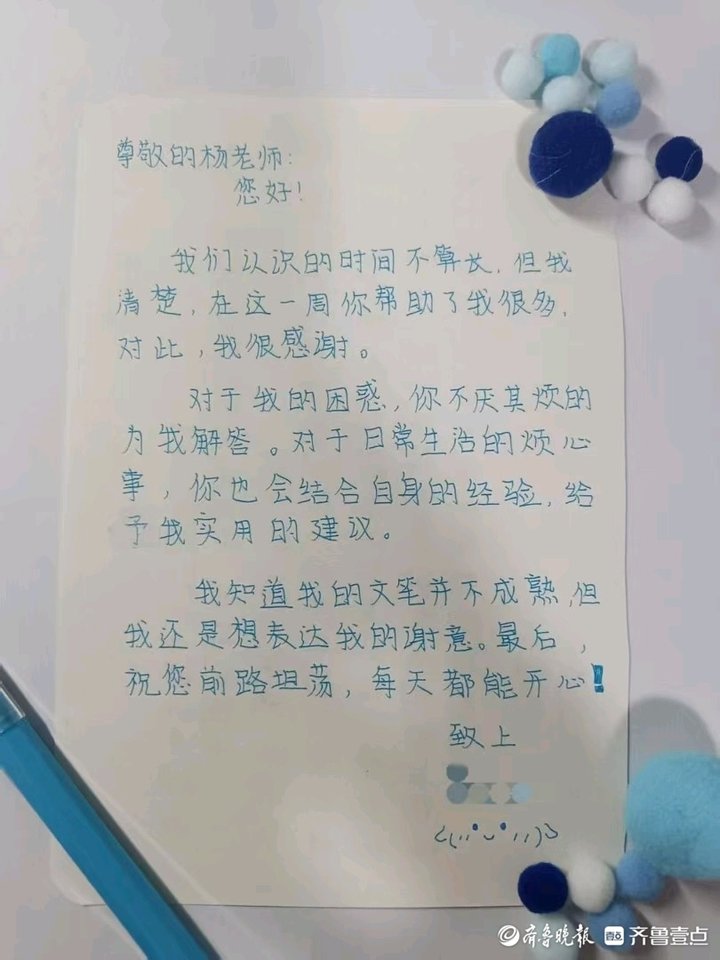 尊敬的杨老师：
您好！
我们认识的时间不算长，但我
清楚，在这一周你帮助了我很多，
对此，我很感谢。
对于我的困惑，你不厌其烦的
为我解答。对于日常生活的烦心
事，你也会结合自身的经验，给
予我实用的建议。
我知道我的文笔并不成熟，但
我还是想表达我的谢意。最后，
祝您前路坦荡，每天都能开心！
致上
齐鲁晚报 壹点 齐鲁壹点